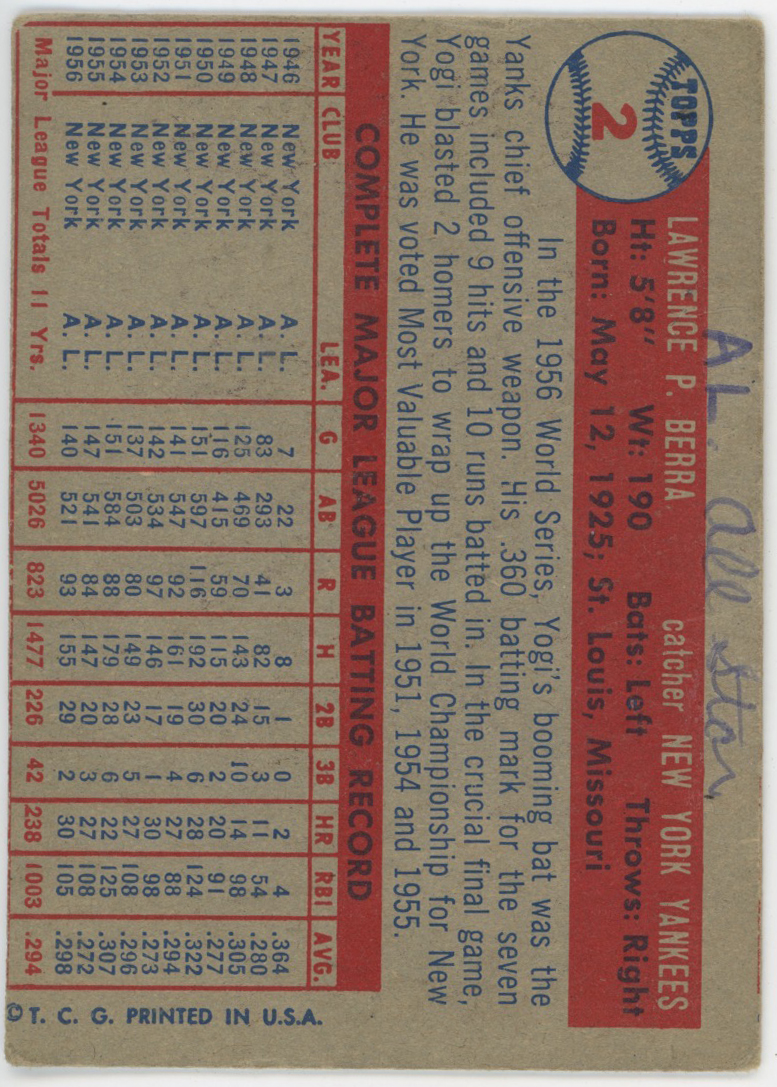 AL. All Star,
TOPPS
2
LAWRENCE P. BERRA catcher NEW YORK YANKEES
Ht: 5'8" Wt: 190 Bats: Left Throws: Right
Born: May 12, 1925; St. Louis, Missouri
In the 1956 World Series, Yogi's booming bat was the
Yanks chief offensive weapon. His .360 batting mark for the seven
games included 9 hits and 10 runs batted in. In the crucial final game,
Yogi blasted 2 homers to wrap up the World Championship for New
York. He was voted Most Valuable Player in 1951, 1954 and 1955.
COMPLETE MAJOR LEAGUE BATTING RECORD
YEAR CLUB LEA. G AB R H 2B 3B HR RBI AVG.
1946 New York A. L. 7 22 3 8 1 0 2 4 .364
1947 New York A. L. 83 293 41 82 15 3 11 54 .280
1948 New York A. L. 125 469 70 143 24 10 14 98 .305
1949 New York A. L. 116 415 59 115 20 2 20 91 .277
1950 New York A. L. 151 597 116 192 30 6 28 124 .322
1951 New York A. L. 141 547 92 161 19 4 27 88 .294
1952 New York A. L. 142 534 97 146 17 1 30 98 .273
1953 New York A. L. 137 503 80 149 23 5 27 108 .296
1954 New York A. L. 151 584 88 179 28 6 22 125 .307
1955 New York A. L. 147 541 84 147 20 3 27 108 .272
1956 New York A. L. 140 521 93 155 29 2 30 105 .298
Major League Totals 11 Yrs. 1340 5026 823 1477 226 42 238 1003 .294
© T. C. G. PRINTED IN U.S.A.